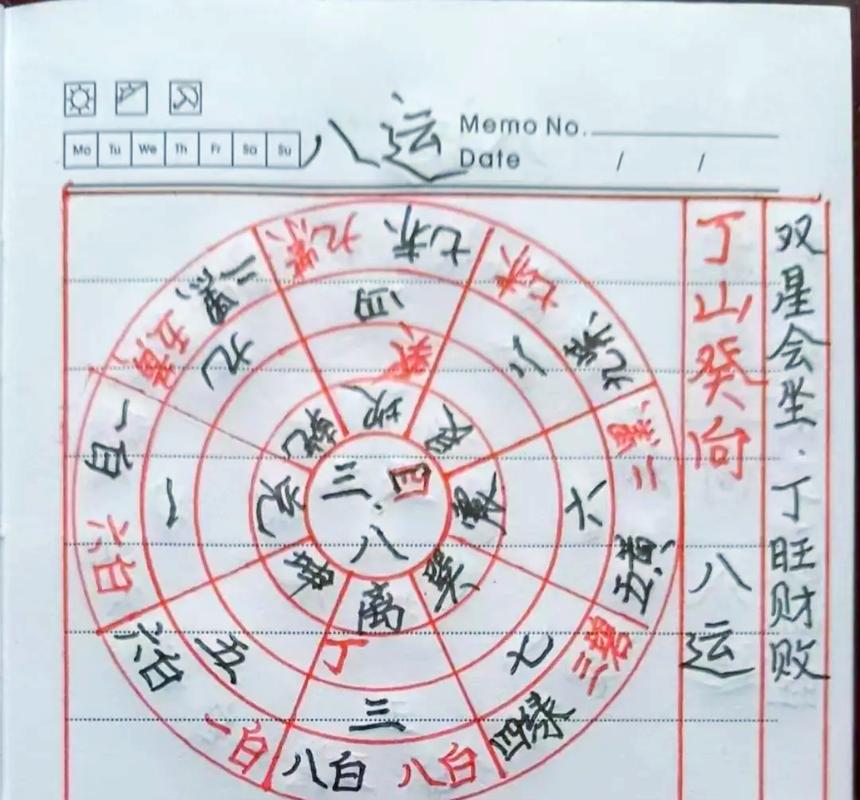 八运
Memo No.
Mo Tu We Th Fr Sa Su
Date / /
九紫 七赤
四
癸
坎
七赤 九紫
八
艮
二黑 五黄
六
震
三碧 四绿
七
巽
八白 八白
三
丁
离
六白 一白
五
坤
一白 六白
一
兑
五黄 二黑
九
乾
三 四
八
丁山癸向 八运
双星会坐·丁旺财败